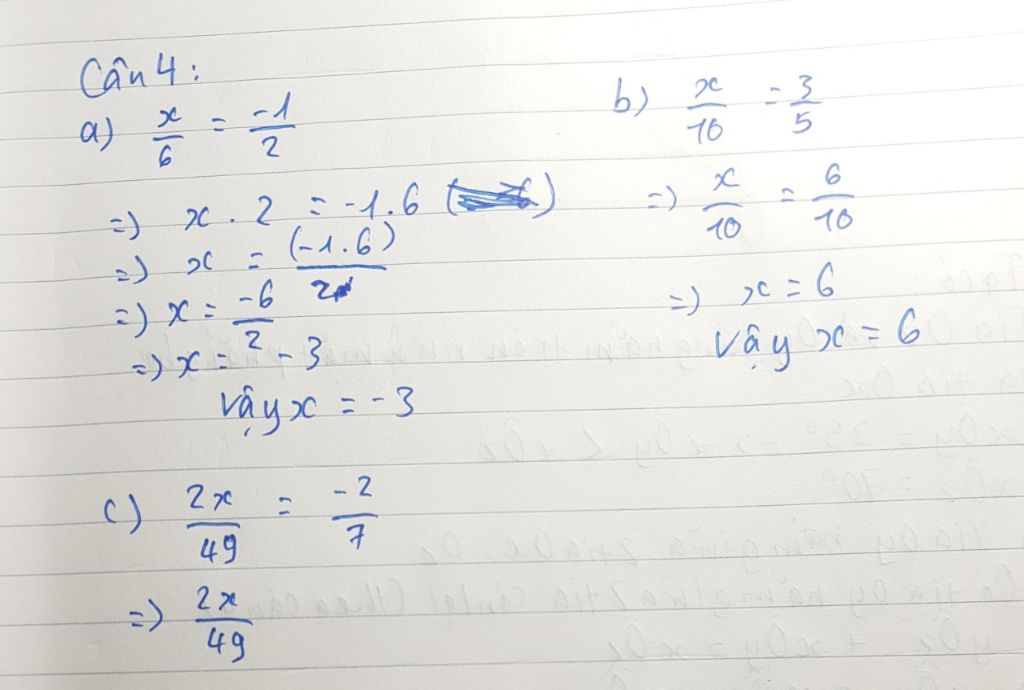 Câu 4:
a) x/6 = -1/2
=) x . 2 = -1.6
=) x = (-1.6)/2
=) x = -6/2
=) x = -3
Vậy x = -3
b) x/10 = 3/5
=) x/10 = 6/10
=) x = 6
Vậy x = 6
c) 2x/49 = -2/7
=) 2x/49